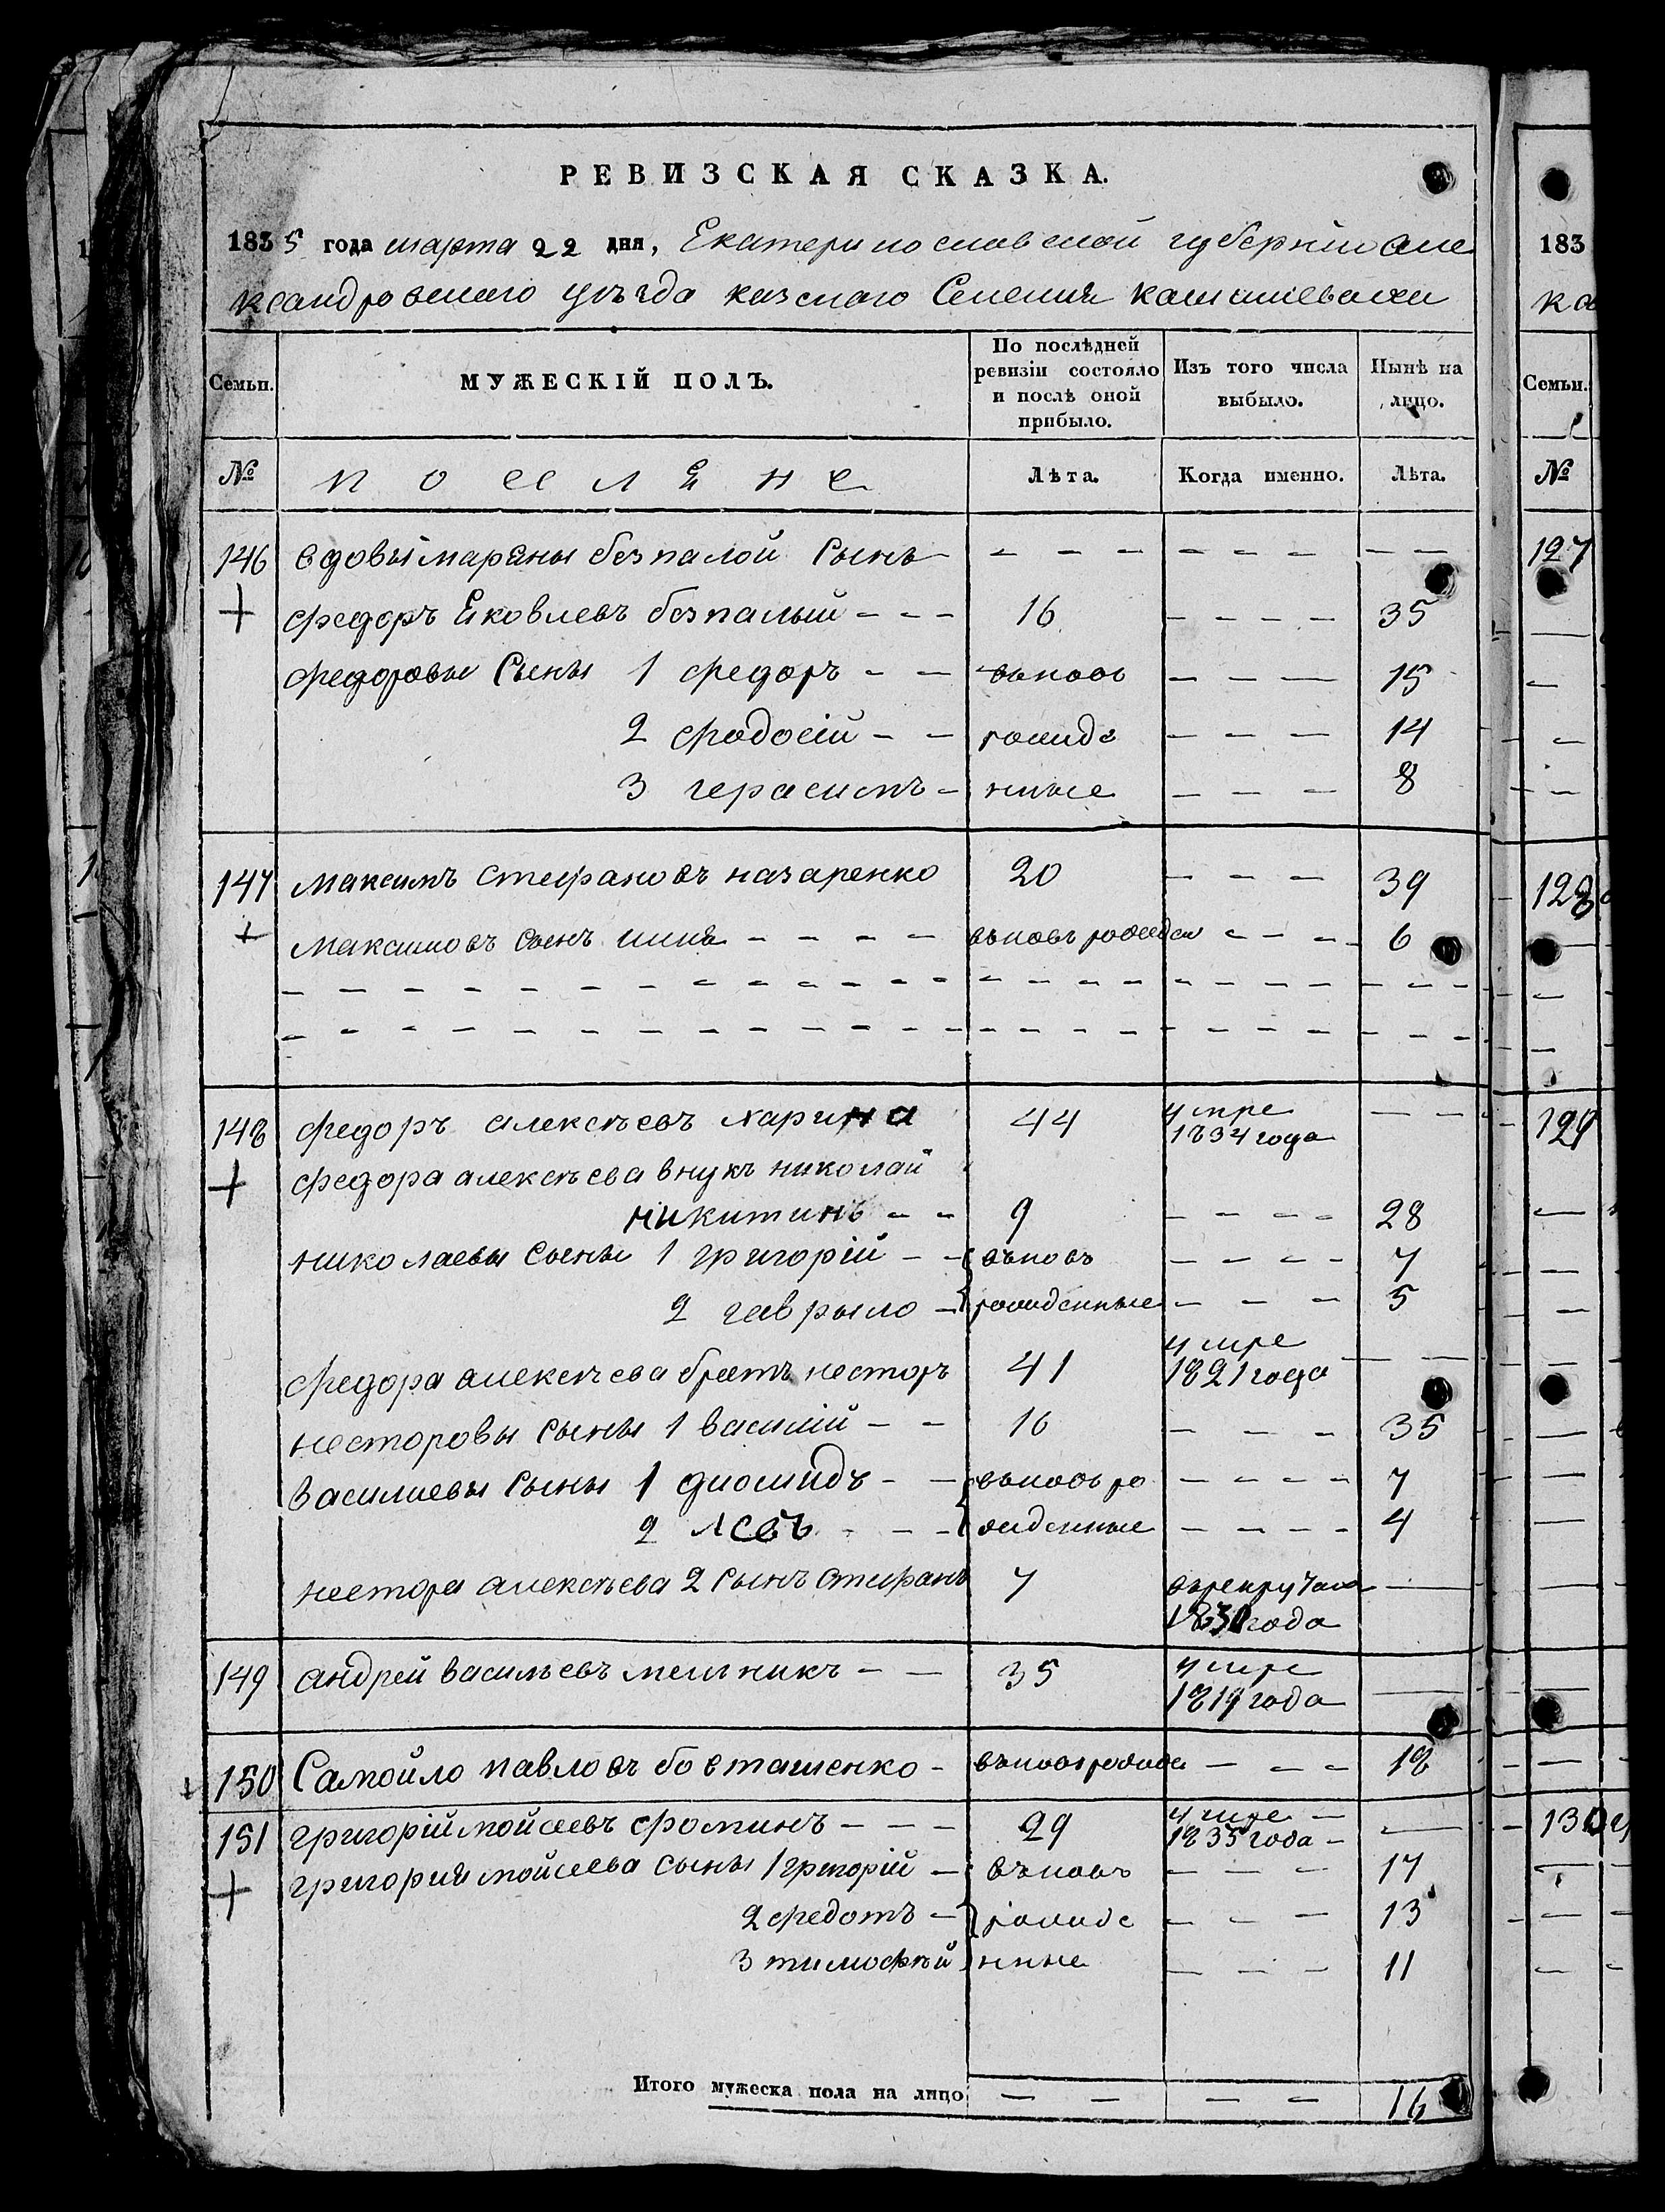 РЕВИЗСКАЯ СКАЗКА.
1835 года марта 22 дня, Екатеринославской губернiи Але
ксандровскаго уѣзда казенаго Селения
Семьи. МУЖЕСКIЙ ПОЛЪ. По послѣдней ревизiи состояло и послѣ оной прибыло. Изъ того числа выбыло. Нынѣ на лицо.
№ Лѣта. Когда именно. Лѣта.
146 вдовы марѣны безпалой Сынъ - - - - - - - -
федоръ Яковлевъ безпалый - - - 16 - - - - 35
федоровы Сыны 1 федоръ - - вьновь - - - 15
2 фодосiй - - рожде - - - 14
3 герасимъ - нные - - - 8
147 Максимъ Стефановъ назаренко 20 - - - 39
Максимовъ Сынъ - - - - вьновь рожден - - - 6
148 федоръ алексѣевъ харина 44 умре 1834 года - -
федора алексѣева внукъ николай
никитинъ - - 9 - - - - 28
николаевы Сыны 1 григорiй - - вьновь - - - - 7
2 гаврыло - рожденные - - - 5
федора алексѣева братъ несторъ 41 умре 1821 года - -
несторовы Сыны 1 василiй - - 16 - - - 35
василиевы Сыны 1 диомидъ - - вьновь ро - - - - 7
2 левъ - - - жденные - - - - 4
нестора алексѣева 2 Сынъ Стефанъ 7 1830 года -
149 андрей васильевъ мельникъ - - 35 умре 1819 года -
150 Самойло павловъ бовташенко - вьновь рожде - - - 18
151 григорiй мойсеевъ фоминъ - - - 29 умре 1835 года - -
григория мойсеева Сыны 1 григорiй - вьновь - - - 17
2 федотъ - рожде - - - 13
3 тимофѣй нные - - - 11
Итого мужеска пола на лицо - - - - 16
183
Семьи.
№
127
128
129
130